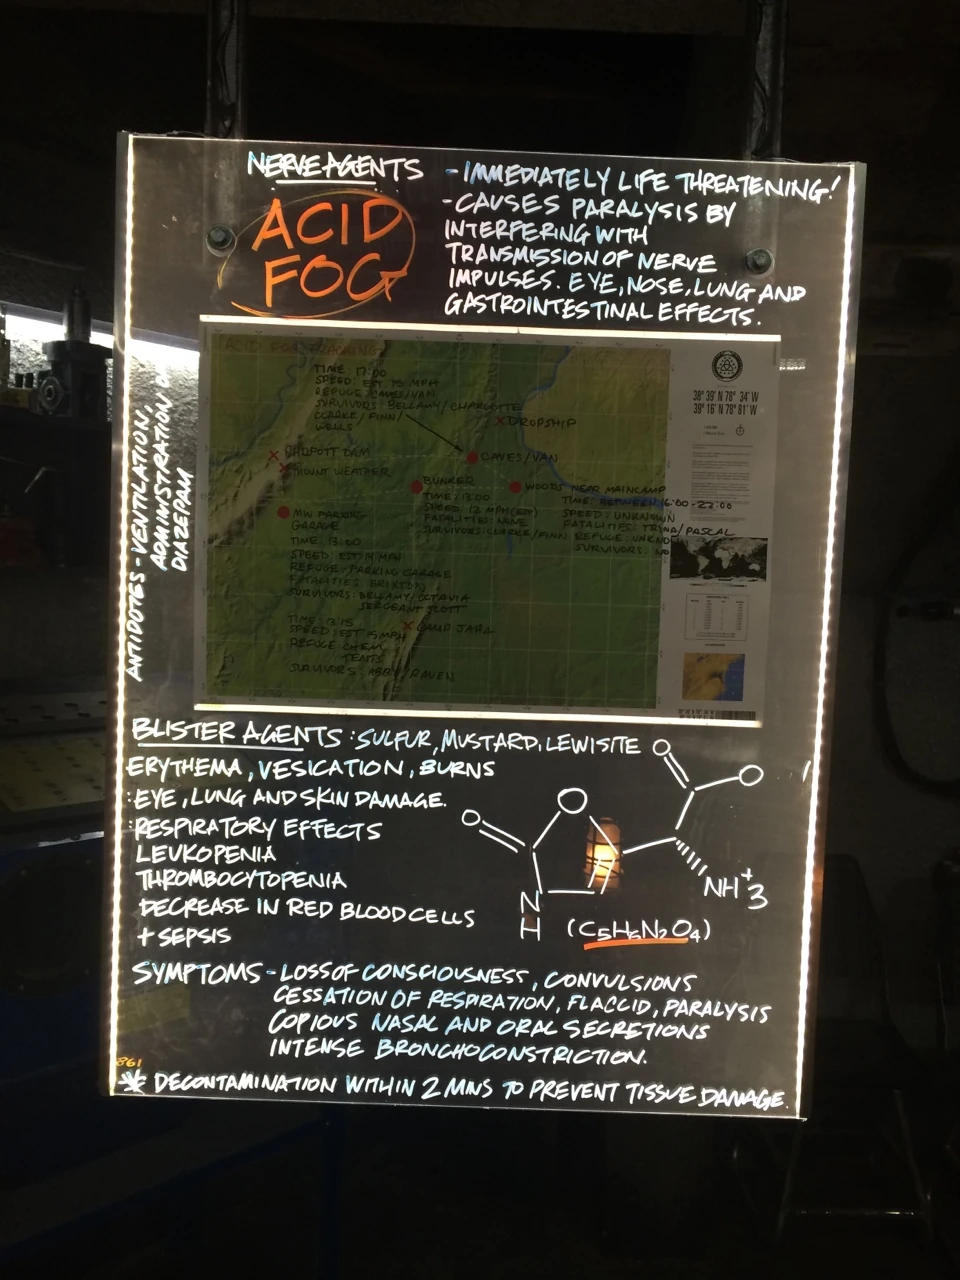 NERVE AGENTS
ACID
FOG
- IMMEDIATELY LIFE THREATENING!
- CAUSES PARALYSIS BY
INTERFERING WITH
TRANSMISSION OF NERVE
IMPULSES. EYE, NOSE, LUNG AND
GASTROINTESTINAL EFFECTS.
ANTIDOTES - VENTILATION,
ADMINISTRATION OF
DIAZEPAM
ACID FOG TRACKING
TIME: 17:00
SPEED: EST 15 MPH
REFUGE: CAVES/VAN
SURVIVORS: BELLAMY/CHARLOTTE
CLARKE/FINN/
WELLS
X DROPSHIP
CAVES/VAN
X PHILPOTT DAM
X MOUNT WEATHER
BUNKER
TIME: 13:00
SPEED 12 MPH (EST)
FATALITIES: NONE
SURVIVORS: CLARKE/FINN
WOODS NEAR MAINCAMP
TIME: BETWEEN 16:00-22:00
SPEED: UNKNOWN
FATALITIES: TRINA/PASCAL
REFUGE: UNKNOWN
SURVIVORS: NO
MW PARKING
GARAGE
TIME: 13:00
SPEED: EST 14 MPH
REFUGE - PARKING GARAGE
FATALITIES:
SURVIVORS: BELLAMY/OCTAVIA
SERGEANT SCOTT
X CAMP JAHA
TIME: 13:15
SPEED: EST 15 MPH
REFUGE CHEM
TENTS
SURVIVORS: ABBY/RAVEN
38° 39' N 78° 34' W
39° 16' N 78° 81' W
BLISTER AGENTS: SULFUR, MUSTARD, LEWISITE
ERYTHEMA, VESICATION, BURNS
: EYE, LUNG AND SKIN DAMAGE.
: RESPIRATORY EFFECTS
LEUKOPENIA
THROMBOCYTOPENIA
DECREASE IN RED BLOOD CELLS
+ SEPSIS
O
O
O
O
N
H
NH+3
(C5H6N2O4)
SYMPTOMS - LOSS OF CONSCIOUSNESS, CONVULSIONS
CESSATION OF RESPIRATION, FLACCID, PARALYSIS
COPIOUS NASAL AND ORAL SECRETIONS
INTENSE BRONCHOCONSTRICTION.
861
* DECONTAMINATION WITHIN 2 MNS TO PREVENT TISSUE DAMAGE.